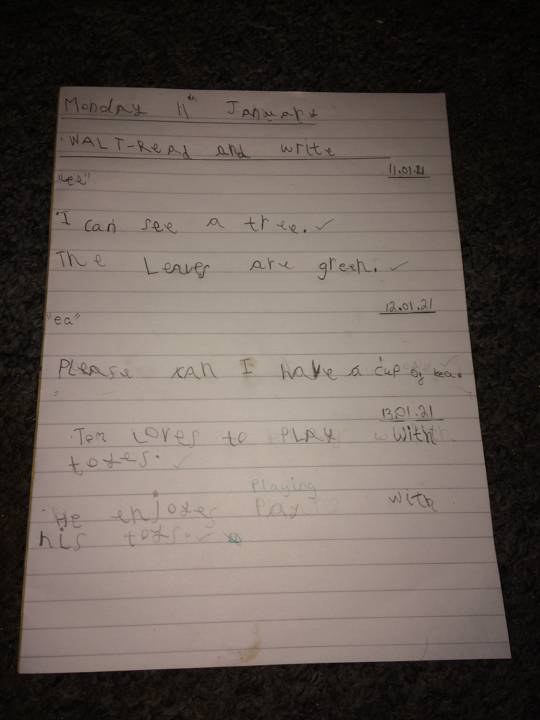 Monday 11th January
WALT-Read and write
11.01.21
"ee"
I can see a tree. ✓
The Leaves are green. ✓
12.01.21
"ea"
Please can I have a cup of tea.
13.01.21
Tom Loves to PLAY with
toyes. ✓
Playing
He enjoyes Pay with
his toys. ✓